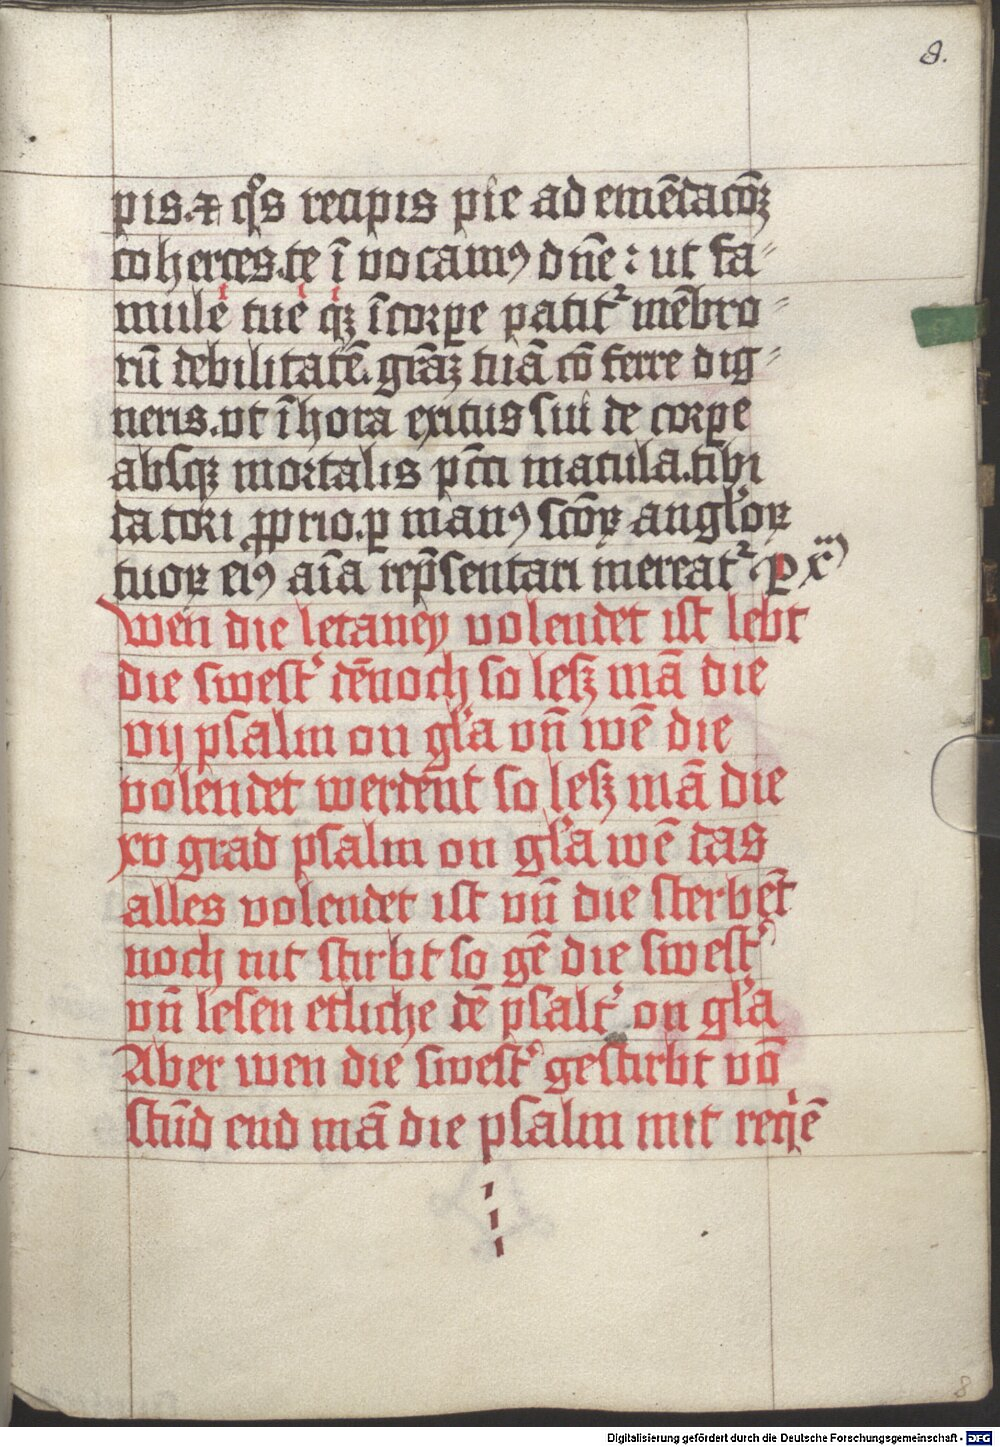 8.
pis. ⁊ qͦs recipis pie ad emēdacōꝫ
coherces. te ī vocamꝰ dn̄e : ut fa⸗
mule tue q̇ꝫ ī corꝑe patitᷣ mēbro⸗
rū debilitatē. gr̄aꝫ tuā cōferre dig⸗
neris. vt ī hora exitus sui de corꝑe
absqꝫ mortalis pc̄ti macula. tibi
datori ꝓprio. ꝑ manꝰ sc̄oꝝ angl̕oꝝ
tuoꝝ eiꝰ aīa rep̄sentari mereatᷣ. P x̄
Wen die letaney volendet ist lebt
die swest̕ dēnoch so lesꝫ mā die
vij psalm on gl̕a vn̄ wē die
volendet werdent so lesꝫ mā die
xv grad psalm on gl̕a wē das
alles volendet ist vn̄ die sterbēt
noch nit stirbt so gē die swest̕
vn̄ lesen etliche dē psalt̕ on gl̕a
Aber wen die swest̕ gestirbt vō
stūd end mā die psalm mit reqiē
8
Digitalisierung gefördert durch die Deutsche Forschungsgemeinschaft - DFG